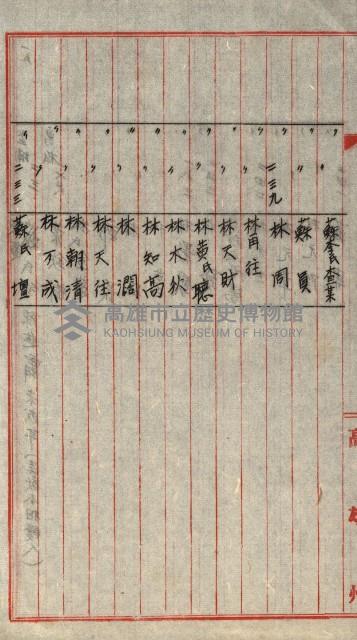 〃 〃 蘇李氏査某
〃 〃 蘇員
〃 二三九 林周
〃 〃 林再往
〃 〃 林天財
〃 〃 林黄氏聽
〃 〃 林木秋
〃 〃 林知高
〃 〃 林濶
〃 〃 林天往
〃 〃 林氏朝清
〃 〃 林万成
〃 二三三 蘇氏壇
高雄州
高雄市立歷史博物館
KAOHSIUNG MUSEUM OF HISTORY